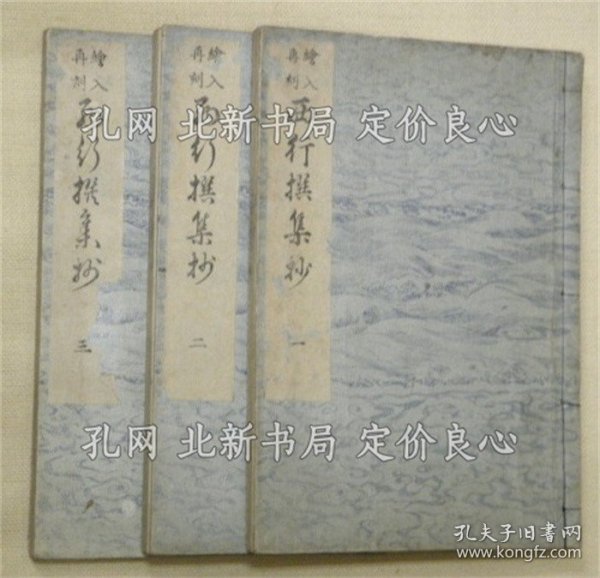 繪入
再刻
西行撰集抄
一
繪入
再刻
西行撰集抄
二
繪入
再刻
西行撰集抄
三
孔网 北新书局 定价良心
孔网 北新书局 定价良心
孔夫子旧书网
www.kongfz.com